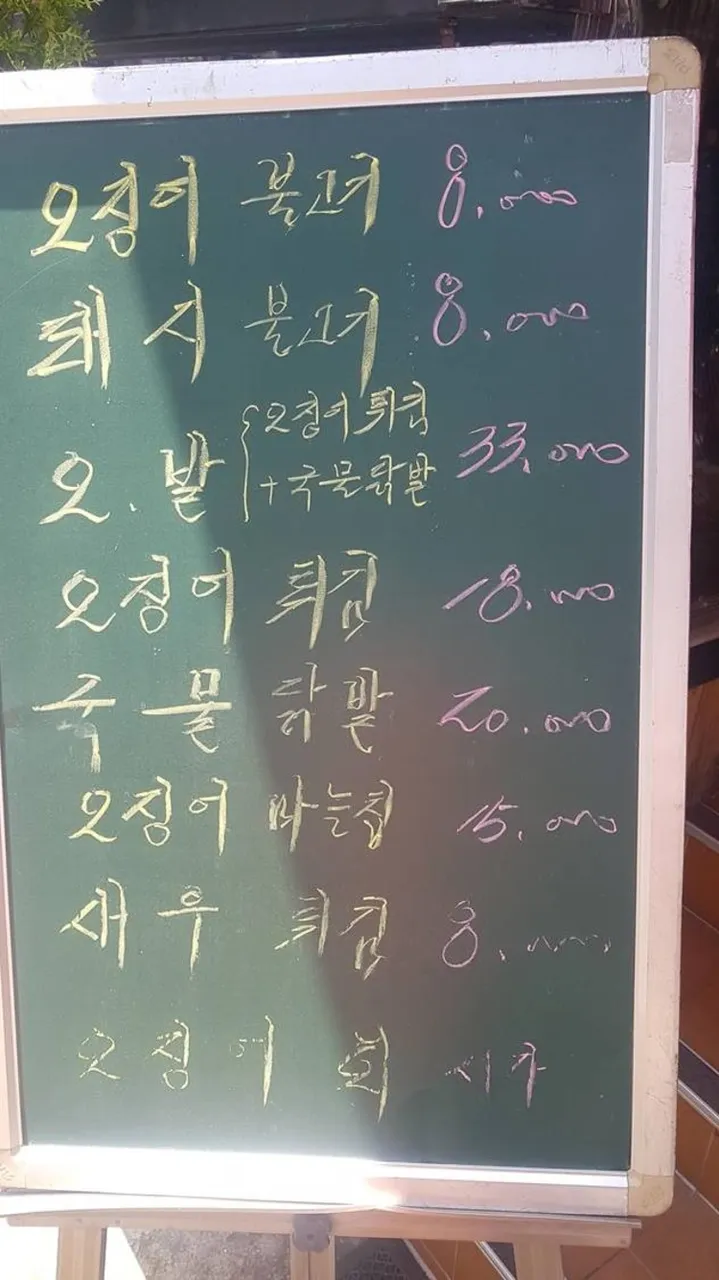 오징어 불고기 8.000
돼지 불고기 8.000
오.발 오징어튀김
+국물닭발 33.000
오징어 튀김 18.000
국물 닭발 20.000
오징어 15.000
새우 튀김 8.000
오징어 회 시가